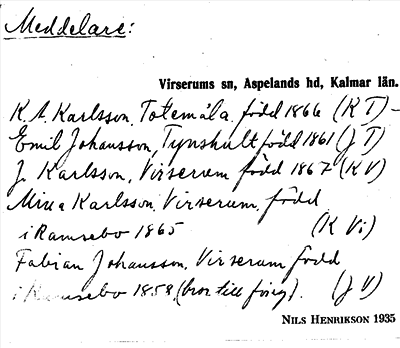 Meddelare:
Virserums sn, Aspelands hd, Kalmar län.
K. A. Karlsson, Totemåla, född 1866 (K T) -
Emil Johansson, Tynshult född 1861 (J T)
J. Karlsson, Virserum född 1867 (K V)
Mina Karlsson, Virserum, född
i Ramsebo 1865 (K Vi)
Fabian Johansson, Virserum född
i Ramsebo 1858, (bror till förig). (J V)
NILS HENRIKSON 1935